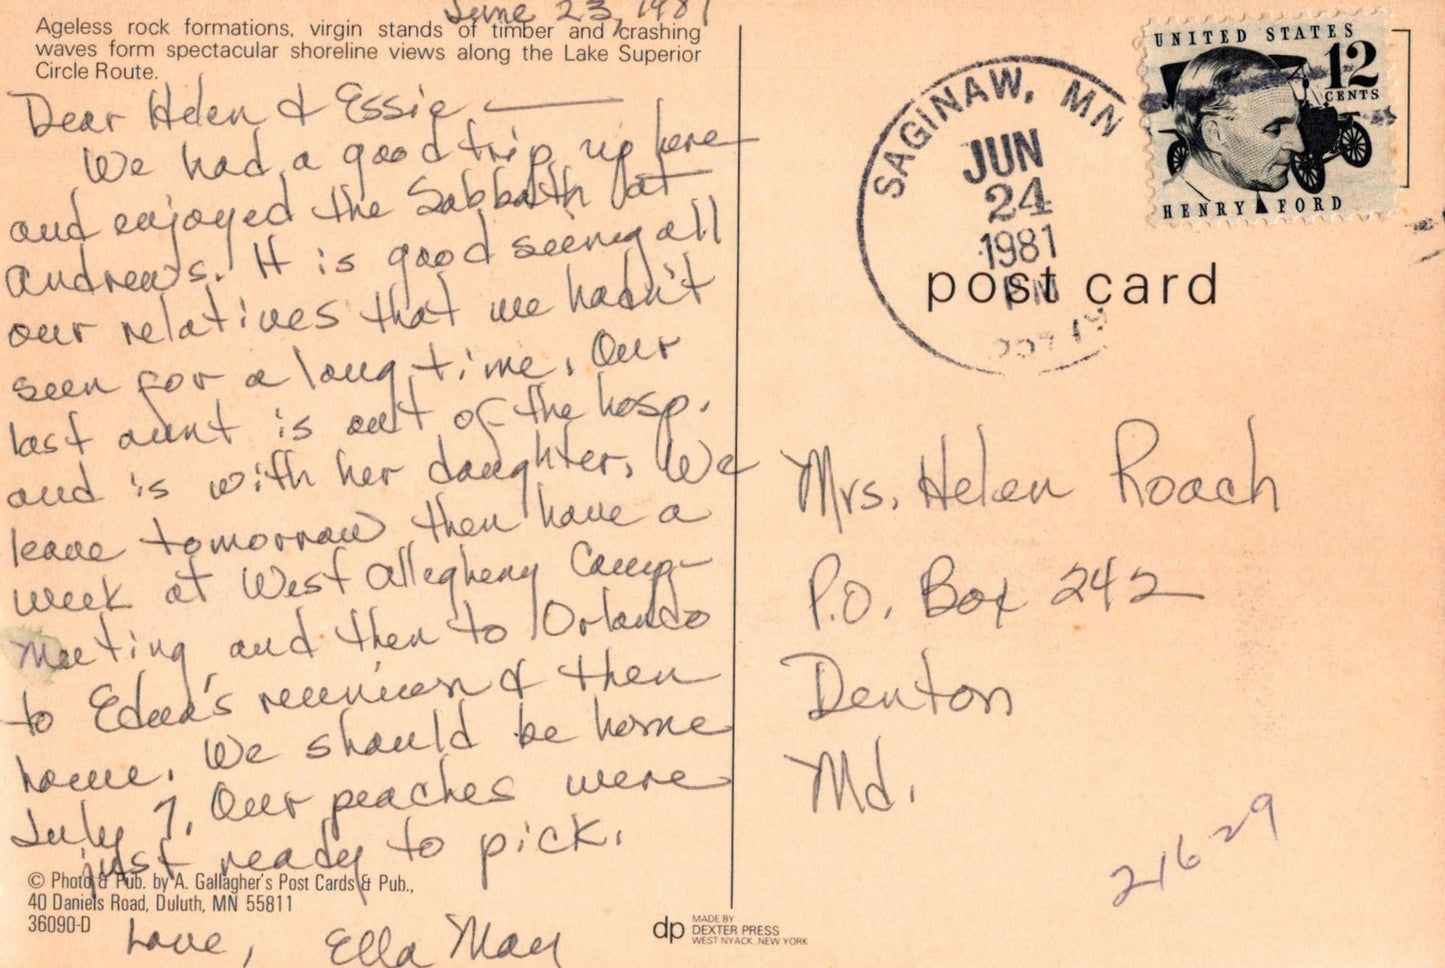 June 23, 1981
Ageless rock formations, virgin stands of timber and crashing
waves form spectacular shoreline views along the Lake Superior
Circle Route.
Dear Helen & Essie —
We had a good trip up here
and enjoyed the Sabbath at
Andrews. It is good seeing all
our relatives that we hadn't
seen for a long time. Our
last aunt is out of the hosp.
and is with her daughter. We
leave tomorrow then have a
week at West Allegheny Camp-
Meeting and then to Orlando
to Edna's reunion & then
home. We should be home
July 7. Our peaches were
just ready to pick.
© Photo & Pub. by A. Gallagher's Post Cards & Pub.,
40 Daniels Road, Duluth, MN 55811
36090-D
Love, Ella May
dp MADE BY
DEXTER PRESS
WEST NYACK, NEW YORK
UNITED STATES
12
CENTS
HENRY FORD
SAGINAW, MN
JUN
24
1981
PM
post card
Mrs. Helen Roach
P.O. Box 242
Denton
Md.
21629